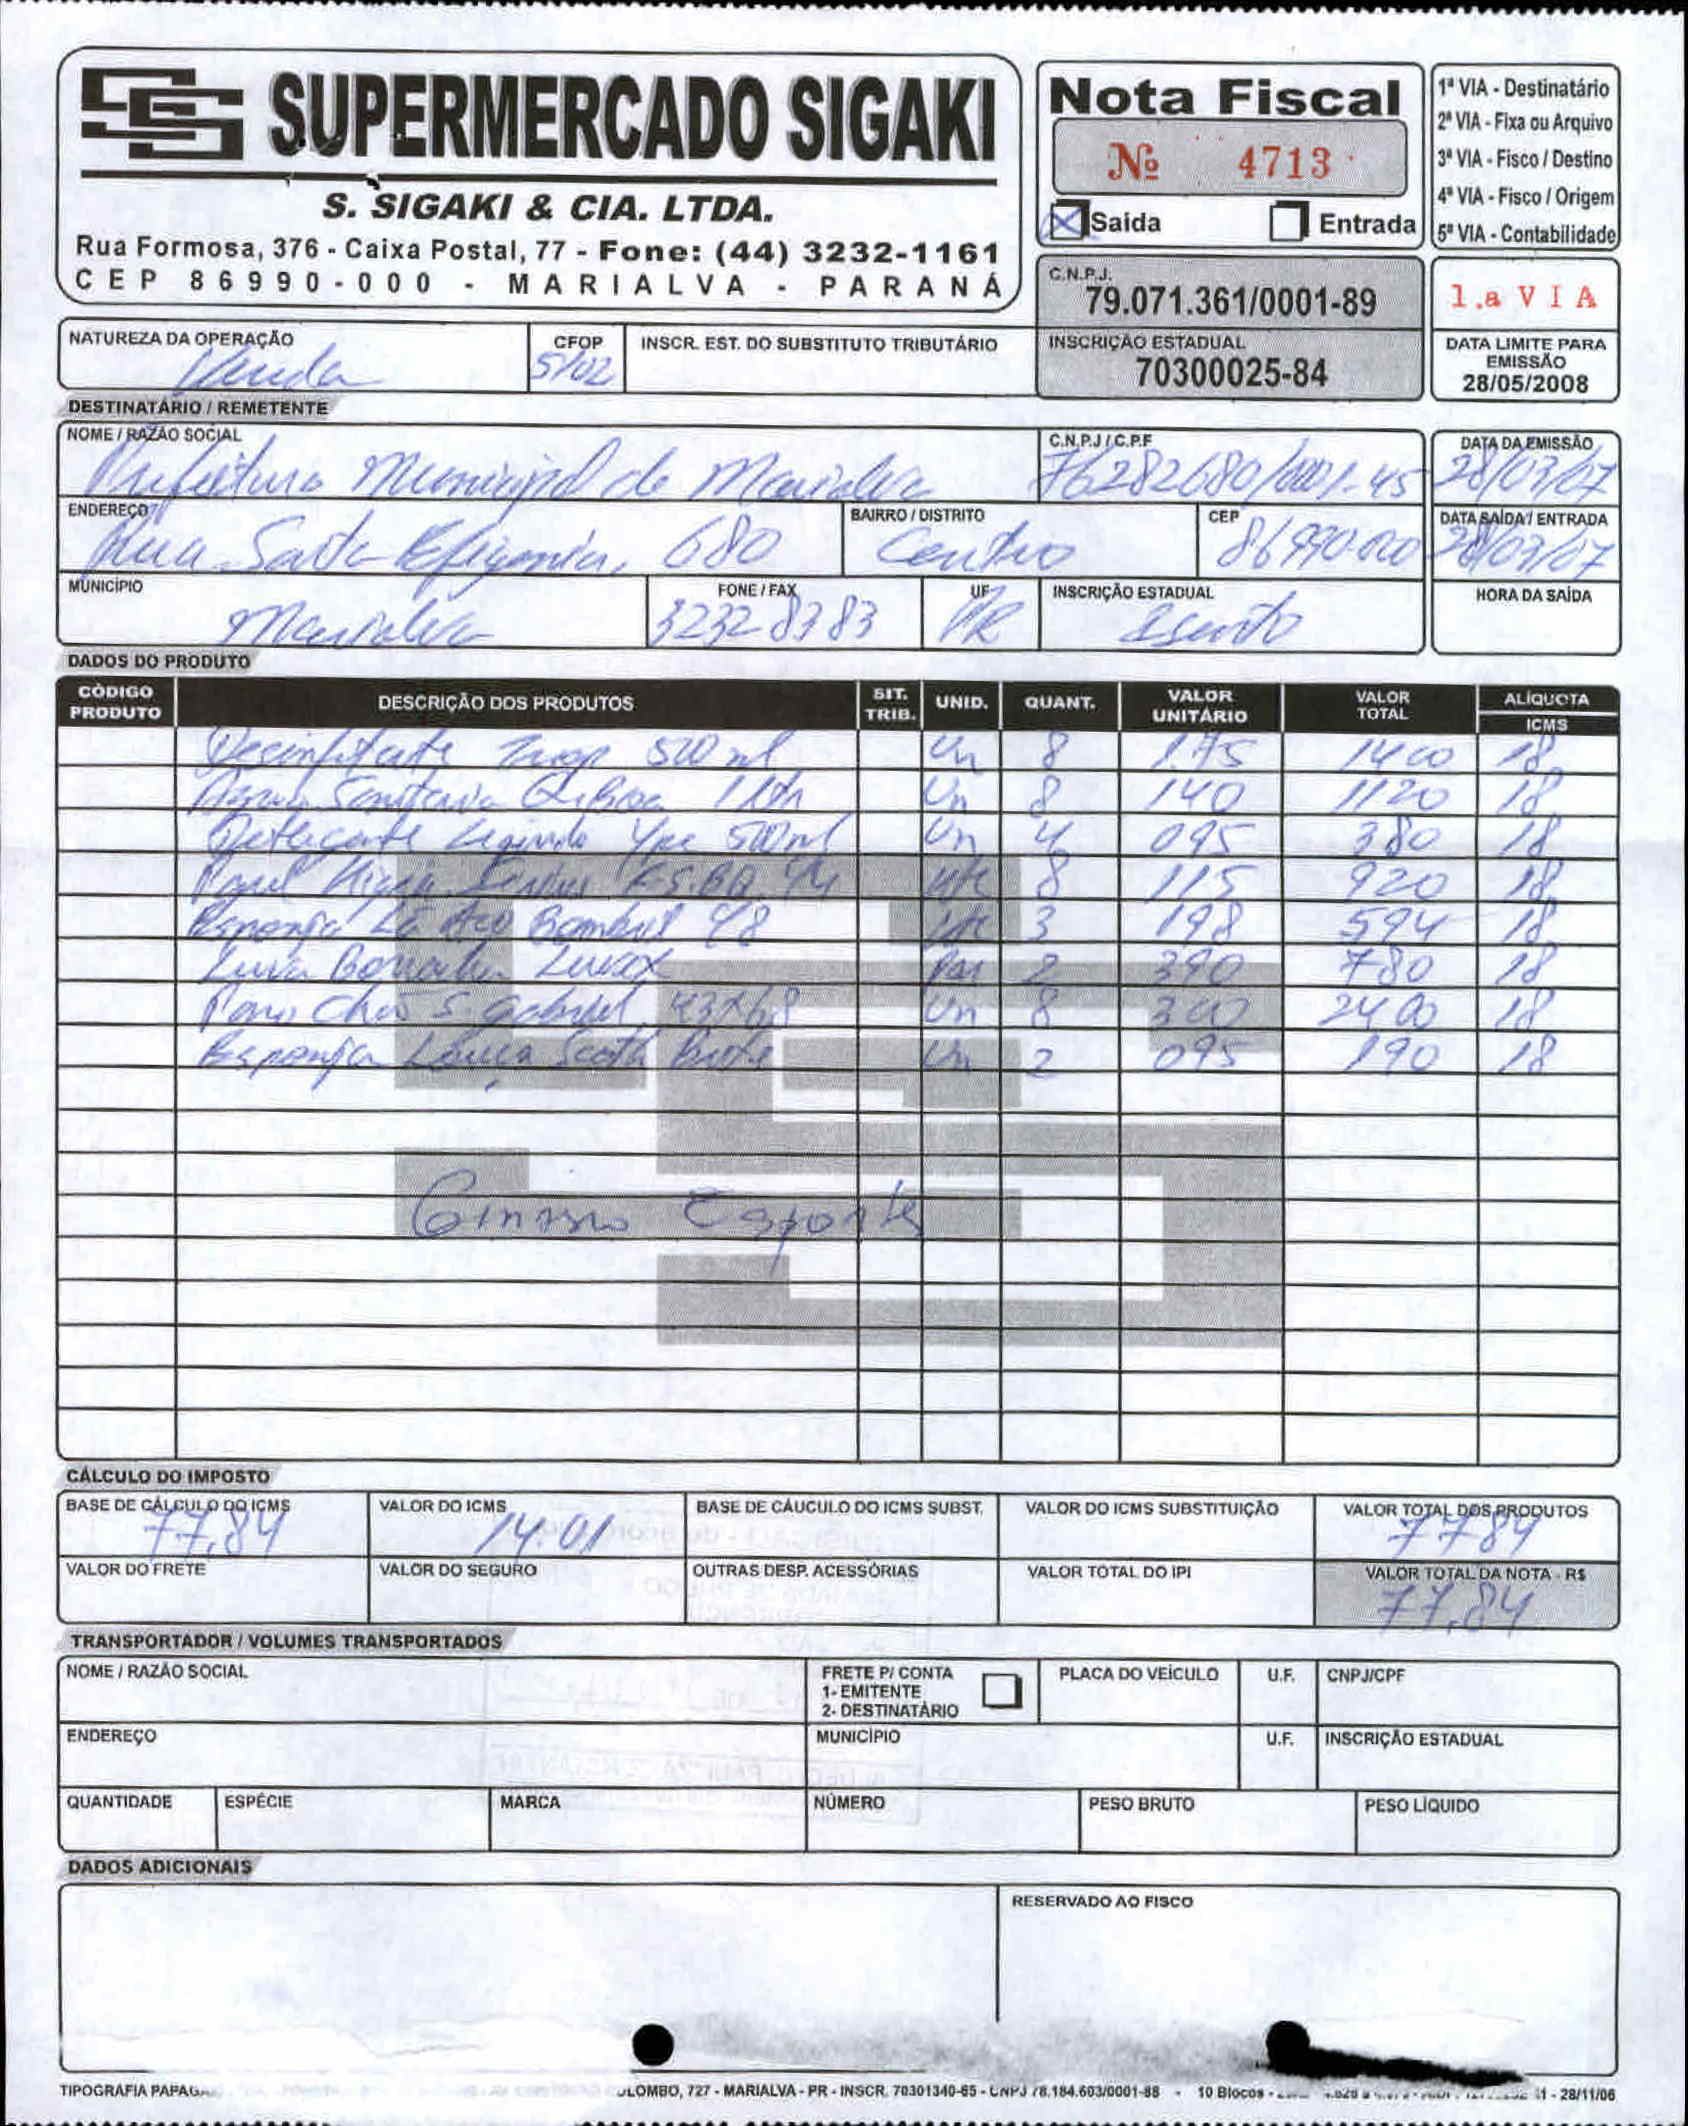 SS SUPERMERCADO SIGAKI
S. SIGAKI & CIA. LTDA.
Rua Formosa, 376 - Caixa Postal, 77 - Fone: (44) 3232-1161
CEP 86990-000 - MARIALVA - PARANÁ
Nota Fiscal
Nº 4713
Saída Entrada
1ª VIA - Destinatário
2ª VIA - Fixa ou Arquivo
3ª VIA - Fisco / Destino
4ª VIA - Fisco / Origem
5ª VIA - Contabilidade
C.N.P.J.
79.071.361/0001-89
1.a VIA
NATUREZA DA OPERAÇÃO CFOP INSCR. EST. DO SUBSTITUTO TRIBUTÁRIO
Venda 5102
INSCRIÇÃO ESTADUAL
70300025-84
DATA LIMITE PARA
EMISSÃO
28/05/2008
DESTINATÁRIO / REMETENTE
NOME / RAZÃO SOCIAL C.N.P.J / C.P.F DATA DA EMISSÃO
Prefeitura Municipal de Marialva 76282680/0001-45 28/03/07
ENDEREÇO BAIRRO / DISTRITO CEP DATA SAÍDA / ENTRADA
Rua Santa Efigenia, 680 Centro 86990-000 28/03/07
MUNICÍPIO FONE / FAX UF INSCRIÇÃO ESTADUAL HORA DA SAÍDA
Marialva 3232 8383 PR Isento
DADOS DO PRODUTO
CÓDIGO PRODUTO DESCRIÇÃO DOS PRODUTOS SIT. TRIB. UNID. QUANT. VALOR UNITÁRIO VALOR TOTAL ALÍQUOTA ICMS
500 ml Un 8 1.75 1400 18
Agua Sanitaria Qiboa 1 Litr Un 8 140 1120 18
Detergente Ype 500ml Un 4 095 380 18
Papel 8 115 920 18
Esponja Lã Aço Bombril 3 198 594 18
Luva Borracha Par 2 390 780 18
Pano Chão S. Gabriel 43x68 Un 8 300 2400 18
Esponja Louça Scoth Brite Un 2 095 190 18
Ginasio Esportes
CÁLCULO DO IMPOSTO
BASE DE CÁLCULO DO ICMS VALOR DO ICMS BASE DE CÁUCULO DO ICMS SUBST. VALOR DO ICMS SUBSTITUIÇÃO VALOR TOTAL DOS PRODUTOS
77,84 14.01 7784
VALOR DO FRETE VALOR DO SEGURO OUTRAS DESP. ACESSÓRIAS VALOR TOTAL DO IPI VALOR TOTAL DA NOTA - R$
77,84
TRANSPORTADOR / VOLUMES TRANSPORTADOS
NOME / RAZÃO SOCIAL FRETE P/ CONTA PLACA DO VEÍCULO U.F. CNPJ/CPF
1- EMITENTE
2- DESTINATÁRIO
ENDEREÇO MUNICÍPIO U.F. INSCRIÇÃO ESTADUAL
QUANTIDADE ESPÉCIE MARCA NÚMERO PESO BRUTO PESO LÍQUIDO
DADOS ADICIONAIS
RESERVADO AO FISCO
TIPOGRAFIA 727 - MARIALVA - PR - INSCR. 70301340-65 - CNPJ 78.184.603/0001-88 - 10 Blocos - 28/11/06